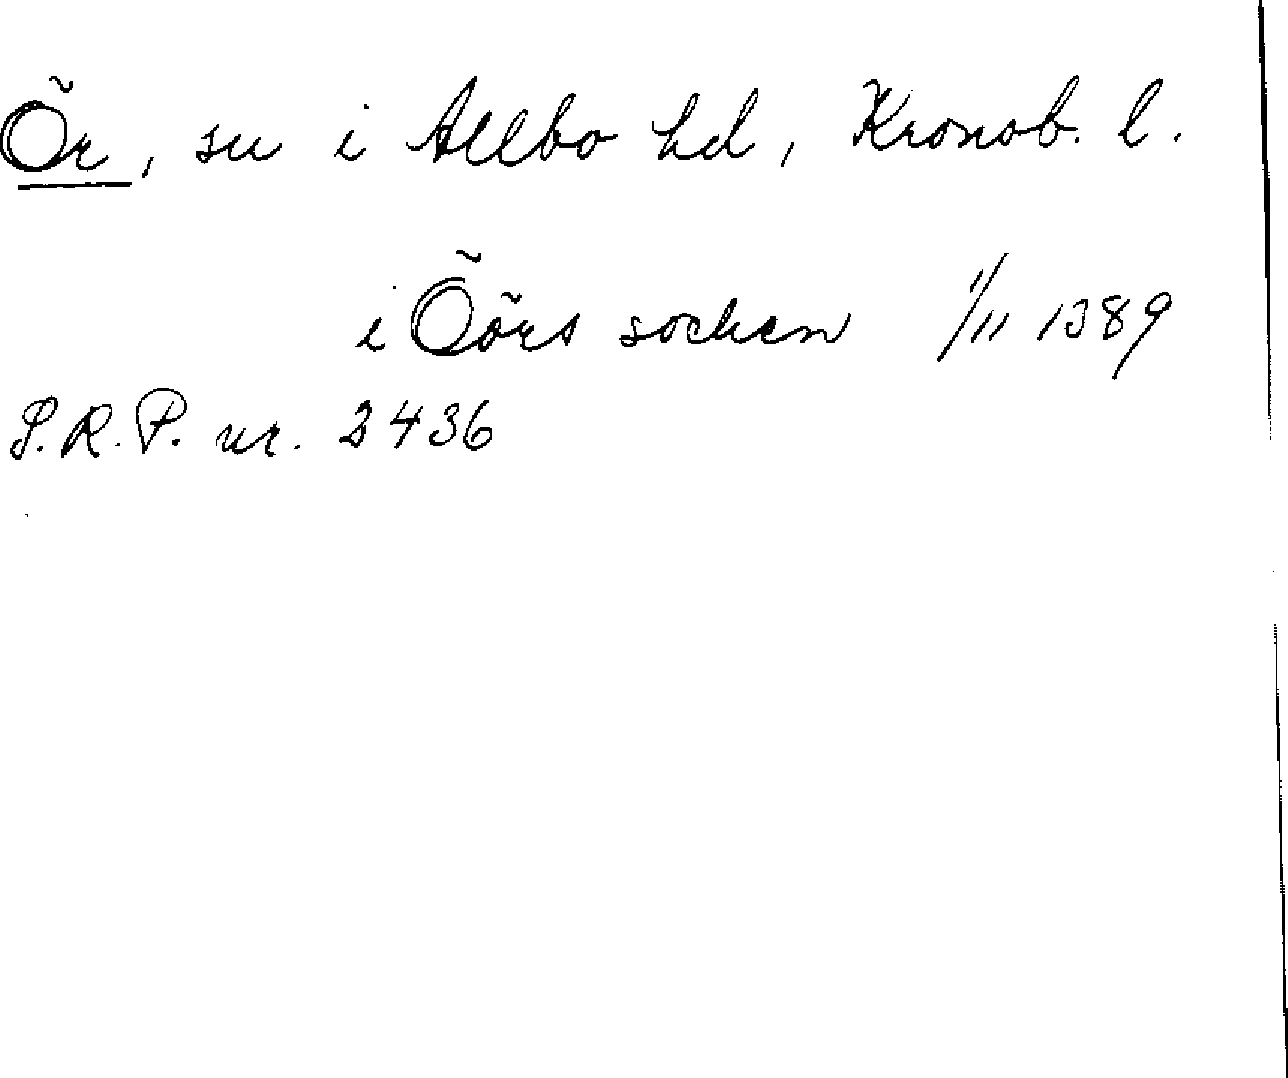 Ör, sn i Allbo hd, Kronob. l.
i Öörs socken 1/11 1389
S.R.P. nr. 2436